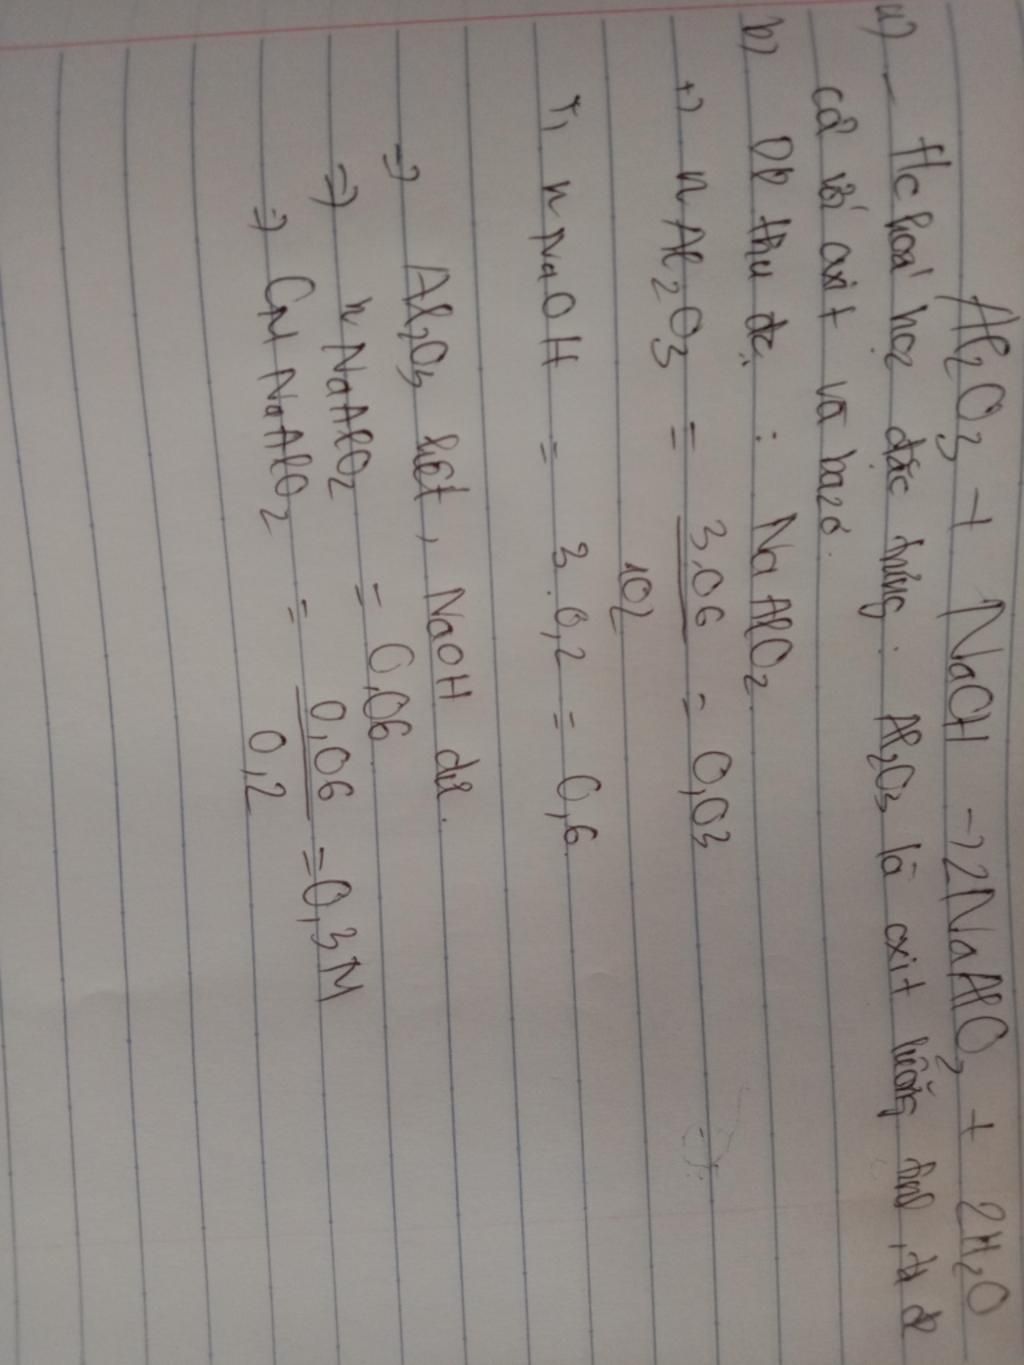 Al2O3 + NaOH → 2NaAlO2 + 2H2O
a) - t/c hoá học đặc trưng : Al2O3 là oxit lưỡng tính , td đc
cả với axit và bazơ.
b) DD thu đc : NaAlO2
+) nAl2O3 = 3,06 / 102 = 0,03
+) nNaOH = 3.0,2 = 0,6
=) Al2O3 hết , NaOH dư.
=) nNaAlO2 = 0,06
=) CM NaAlO2 = 0,06 / 0,2 = 0,3M